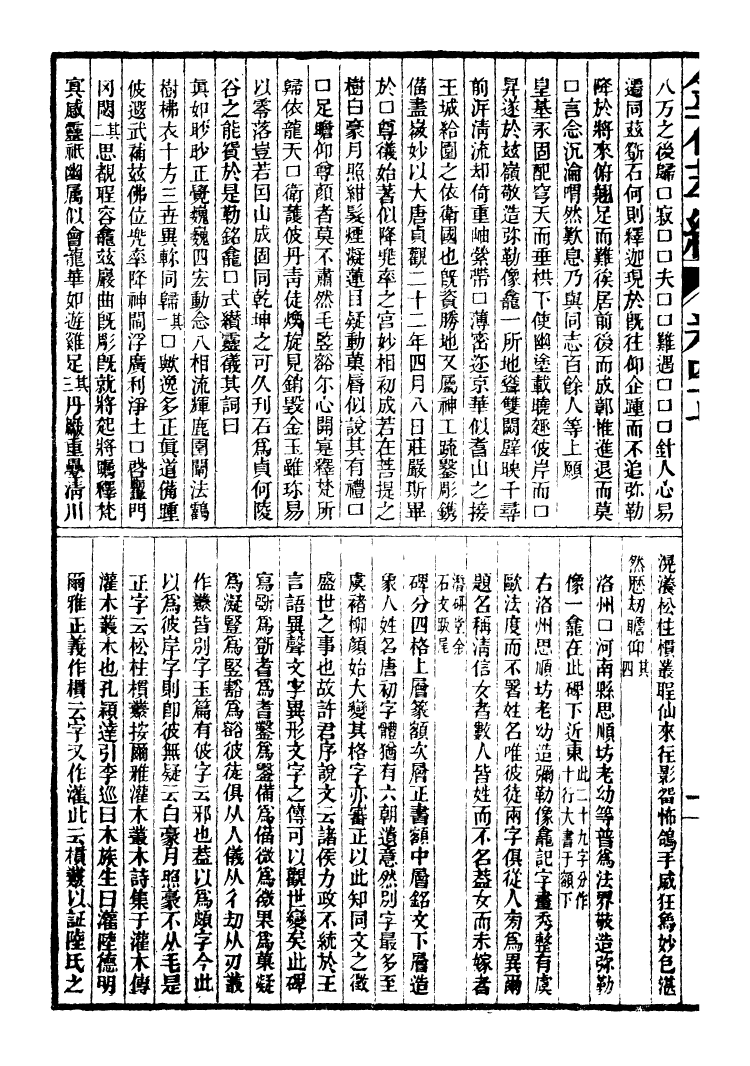 八万之後歸口寂口口夫口口難遇口口口針人心易
遷同茲斲石何則釋迦現於旣往仰企踵而不追弥勒
降於將來俯翹足而難俟居前後而成鄣惟進退而莫
口言念沉淪喟然歎息乃與同志百餘人等上願
皇基永固配穹天而垂拱下使幽塗載曉趣彼岸而口
昇遂於兹嶺敬造弥勒像龕一所地聳雙闕壁映千尋
前泝清流却倚重岫縈帶口薄密迩京華似耆山之接
王城給園之依衛國也旣資勝地又屬神工疏鑿彫鐫
偹盡微妙以大唐貞觀二十二年四月八日莊嚴斯畢
於口尊儀始著似降兠率之宮妙相初成若在菩提之
樹白豪月照紺髮煙凝蓮目疑動菓脣似說其有禮口
口足瞻仰尊顏者莫不肅然毛竪豁尓心開寔釋梵所
歸依龍天口衛護彼丹靑徒煥旋見銷毀金玉雖珎易
以零落豈若因山成固同乾坤之可久刊石爲貞何陵
谷之能貿於是勒銘龕口式纉靈儀其詞曰
眞如眇眇正覺巍巍四宏動念八相流輝鹿園闡法鶴
樹拂衣十方三丗異軫同歸其一口歟逸多正眞道備踵
彼遺武蒞兹佛位兠率降神閻浮廣利淨土口啓靈門
罔閟其二思覩聖容龕兹嚴曲旣彫旣就將起將矚釋梵
寘感靈祇幽属似會龍華如遊雞足其三丹巘重疊清川
滉瀁松柱樌叢聖仙來往影留怖鴿手威狂象妙色湛
然歷刧瞻仰其四
洛州口河南縣思順坊老幼等普爲法界敬造弥勒
像一龕在此碑下近東此二十九字分作十行大書于額下
右洛州思順坊老幼造彌勒像龕記字畫秀整有虞
歐法度而不署姓名唯彼徒兩字俱從人旁爲異爾
題名稱清信女者數人皆姓而不名葢女而未嫁者
潛研堂金石文跋尾
碑分四格上層篆額次層正書額中層銘文下層造
象人姓名唐初字體猶有六朝遺意然別字最多至
虞褚柳顏始大變其格字亦審正以此知同文之徵
盛世之事也故許君序說文云諸侯力政不統於王
言語異聲文字異形文字之傳可以觀世變矣此碑
寫斲爲斵耆爲耆鑿爲鑿備爲偹微爲微果爲菓疑
爲凝豎爲竪豁爲豁彼徒俱从人儀从彳刧从刃叢
作叢皆別字玉篇有彼字云邪也葢以爲頗字今此
以爲彼岸字則卽彼無疑云白豪月照豪不从毛是
正字云松柱樌叢按爾雅灌木叢木詩集于灌木傳
灌木叢木也孔穎達引李巡曰木族生曰灌陸德明
爾雅正義作樌云字又作灌此云樌叢以証陸氏之